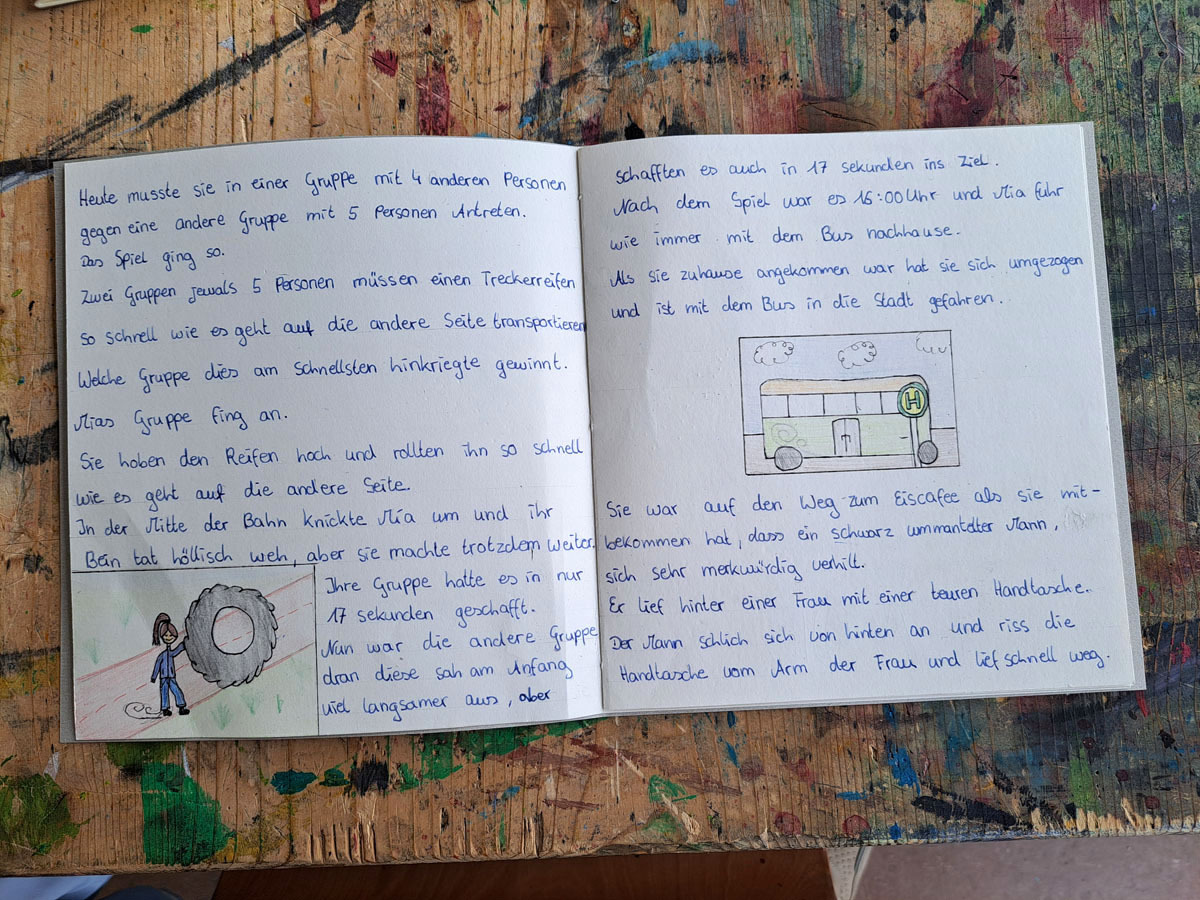 Heute musste sie in einer Gruppe mit 4 anderen Personen
gegen eine andere Gruppe mit 5 Personen Antreten.
Das Spiel ging so.
Zwei Gruppen jewals 5 Personen müssen einen Treckerreifen
so schnell wie es geht auf die andere Seite transportieren
Welche Gruppe dies am schnellsten hinkriegte gewinnt.
Mias Gruppe fing an.
Sie hoben den Reifen hoch und rollten ihn so schnell
wie es geht auf die andere Seite.
In der Mitte der Bahn knickte Mia um und ihr
Bein tat höllisch weh, aber sie machte trotzdem weiter.
Ihre Gruppe hatte es in nur
17 sekunden geschafft.
Nun war die andere Gruppe
dran diese sah am Anfang
viel langsamer aus, aber
schafften es auch in 17 sekunden ins Ziel.
Nach dem Spiel war es 16:00 Uhr und Mia fuhr
wie immer mit dem Bus nachhause.
Als sie zuhause angekommen war hat sie sich umgezogen
und ist mit dem Bus in die Stadt gefahren.
H
Sie war auf den Weg zum Eiscafee als sie mit-
bekommen hat, dass ein schwarz ummantelter Mann,
sich sehr merkwürdig verhilt.
Er lief hinter einer Frau mit einer teuren Handtasche.
Der Mann schlich sich von hinten an und riss die
Handtasche vom Arm der Frau und lief schnell weg.